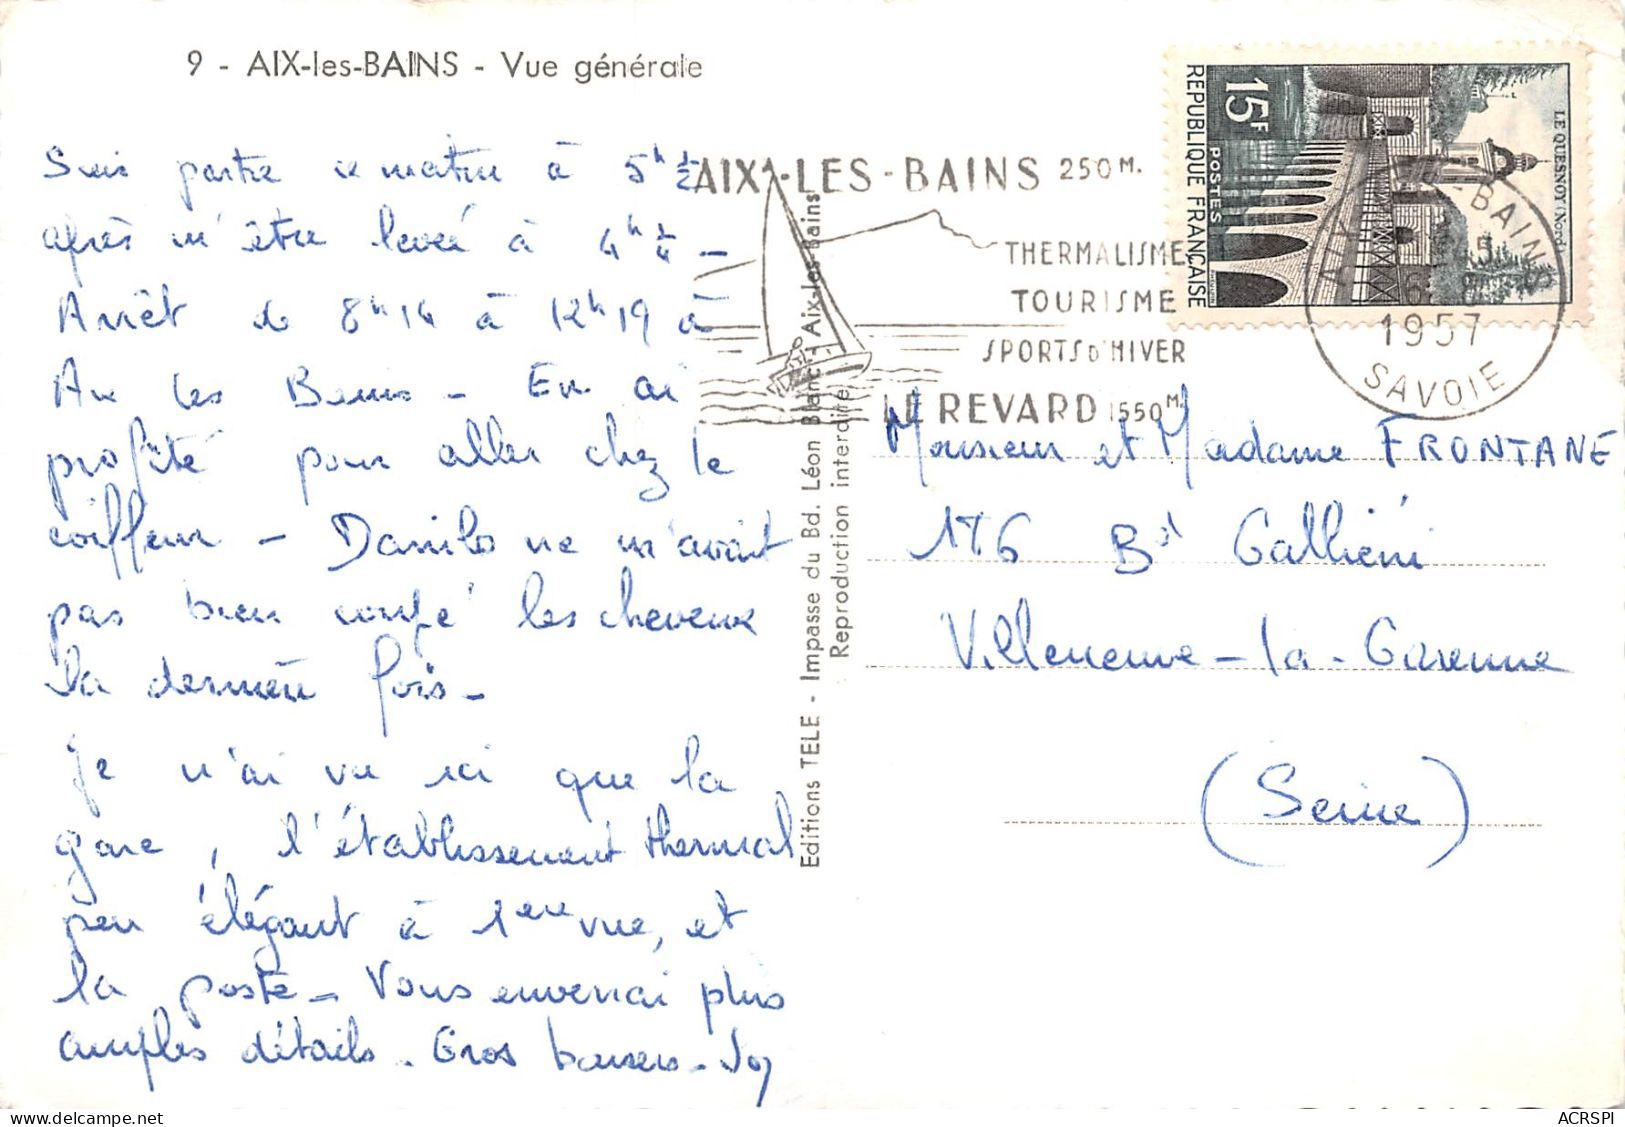 9 - AIX-les-BAINS - Vue générale
Suis partie ce matin à 5h 1/2
après m'être levée à 4h 1/4 -
Arrêt de 8h14 à 12h19 à
Aix les Bains - En ai
profité pour aller chez le
coiffeur - Danilo ne m'avait
pas bien coupé les cheveux
la dernière fois -
Je n'ai vu ici que la
gare, l'établissement thermal
peu élégant à 1ere vue, et
la poste - Vous enverrai plus
amples détails. Gros baisers - Joy
Editions TELE - Impasse du Bd. Léon Blanc - Aix-les-Bains
Reproduction interdite
AIX-LES-BAINS 250 M.
THERMALISME
TOURISME
SPORTS D'HIVER
LE REVARD 1550 M.
15F
POSTES
REPUBLIQUE FRANÇAISE
LE QUESNOY (Nord)
AIX-LES-BAINS
1957
SAVOIE
Monsieur et Madame FRONTANE
176 Bd Galliéni
Villeneuve-la-Garenne
(Seine)
ACRSPI